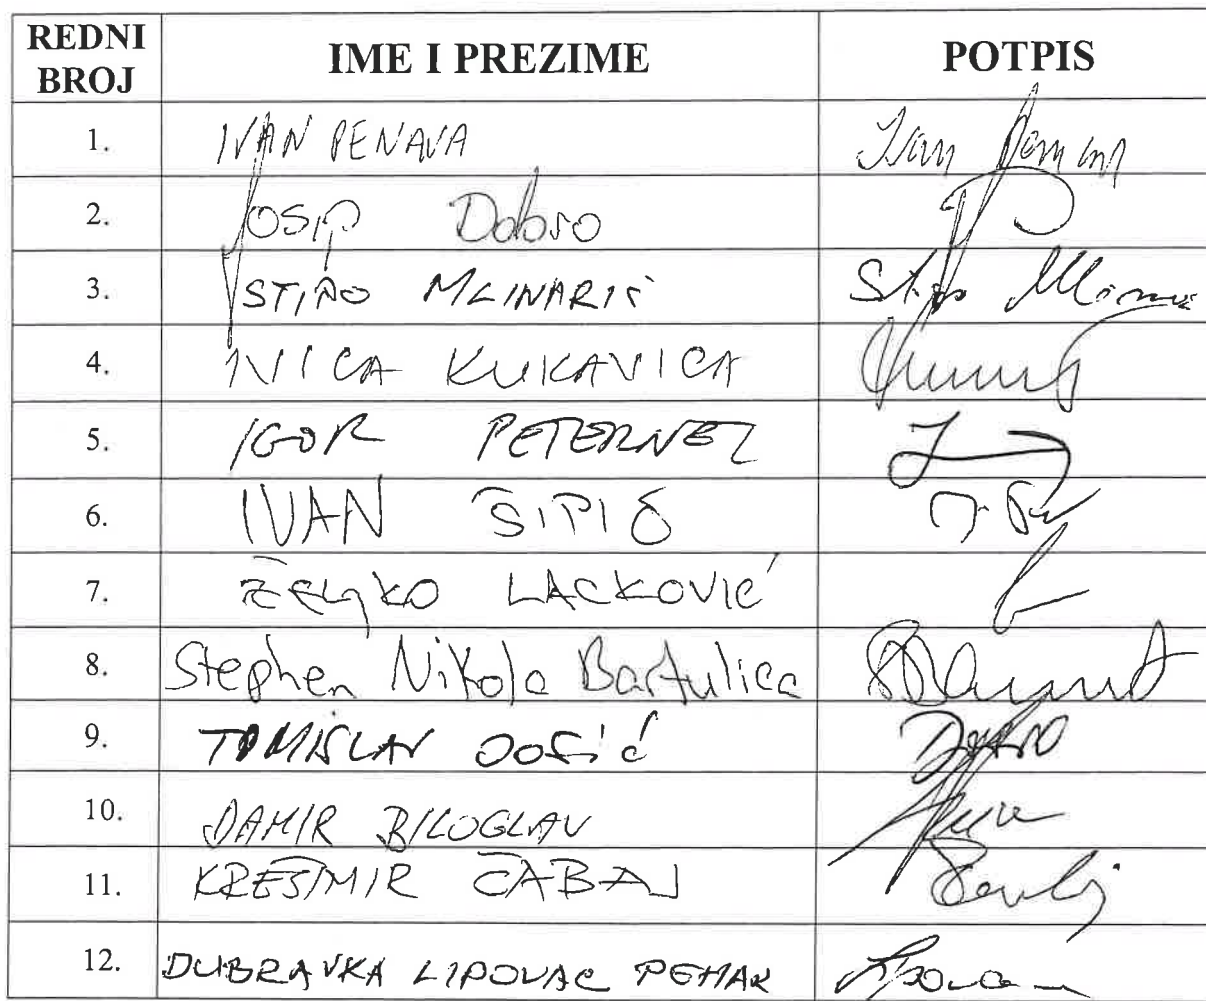 REDNI BROJ IME I PREZIME POTPIS
1. IVAN PENAVA Ivan Penava
2. Josip Dabro
3. STIPO MLINARIĆ Stipo Mlinarić
4. IVICA KUKAVICA
5. IGOR PETERNEL
6. IVAN ŠIPIĆ
7. ŽELJKO LACKOVIĆ
8. Stephen Nikola Bartulica
9. TOMISLAV JOSIĆ
10. DAMIR BILOGLAV
11. KREŠIMIR ČABAJ
12. DUBRAVKA LIPOVAC PEHAR